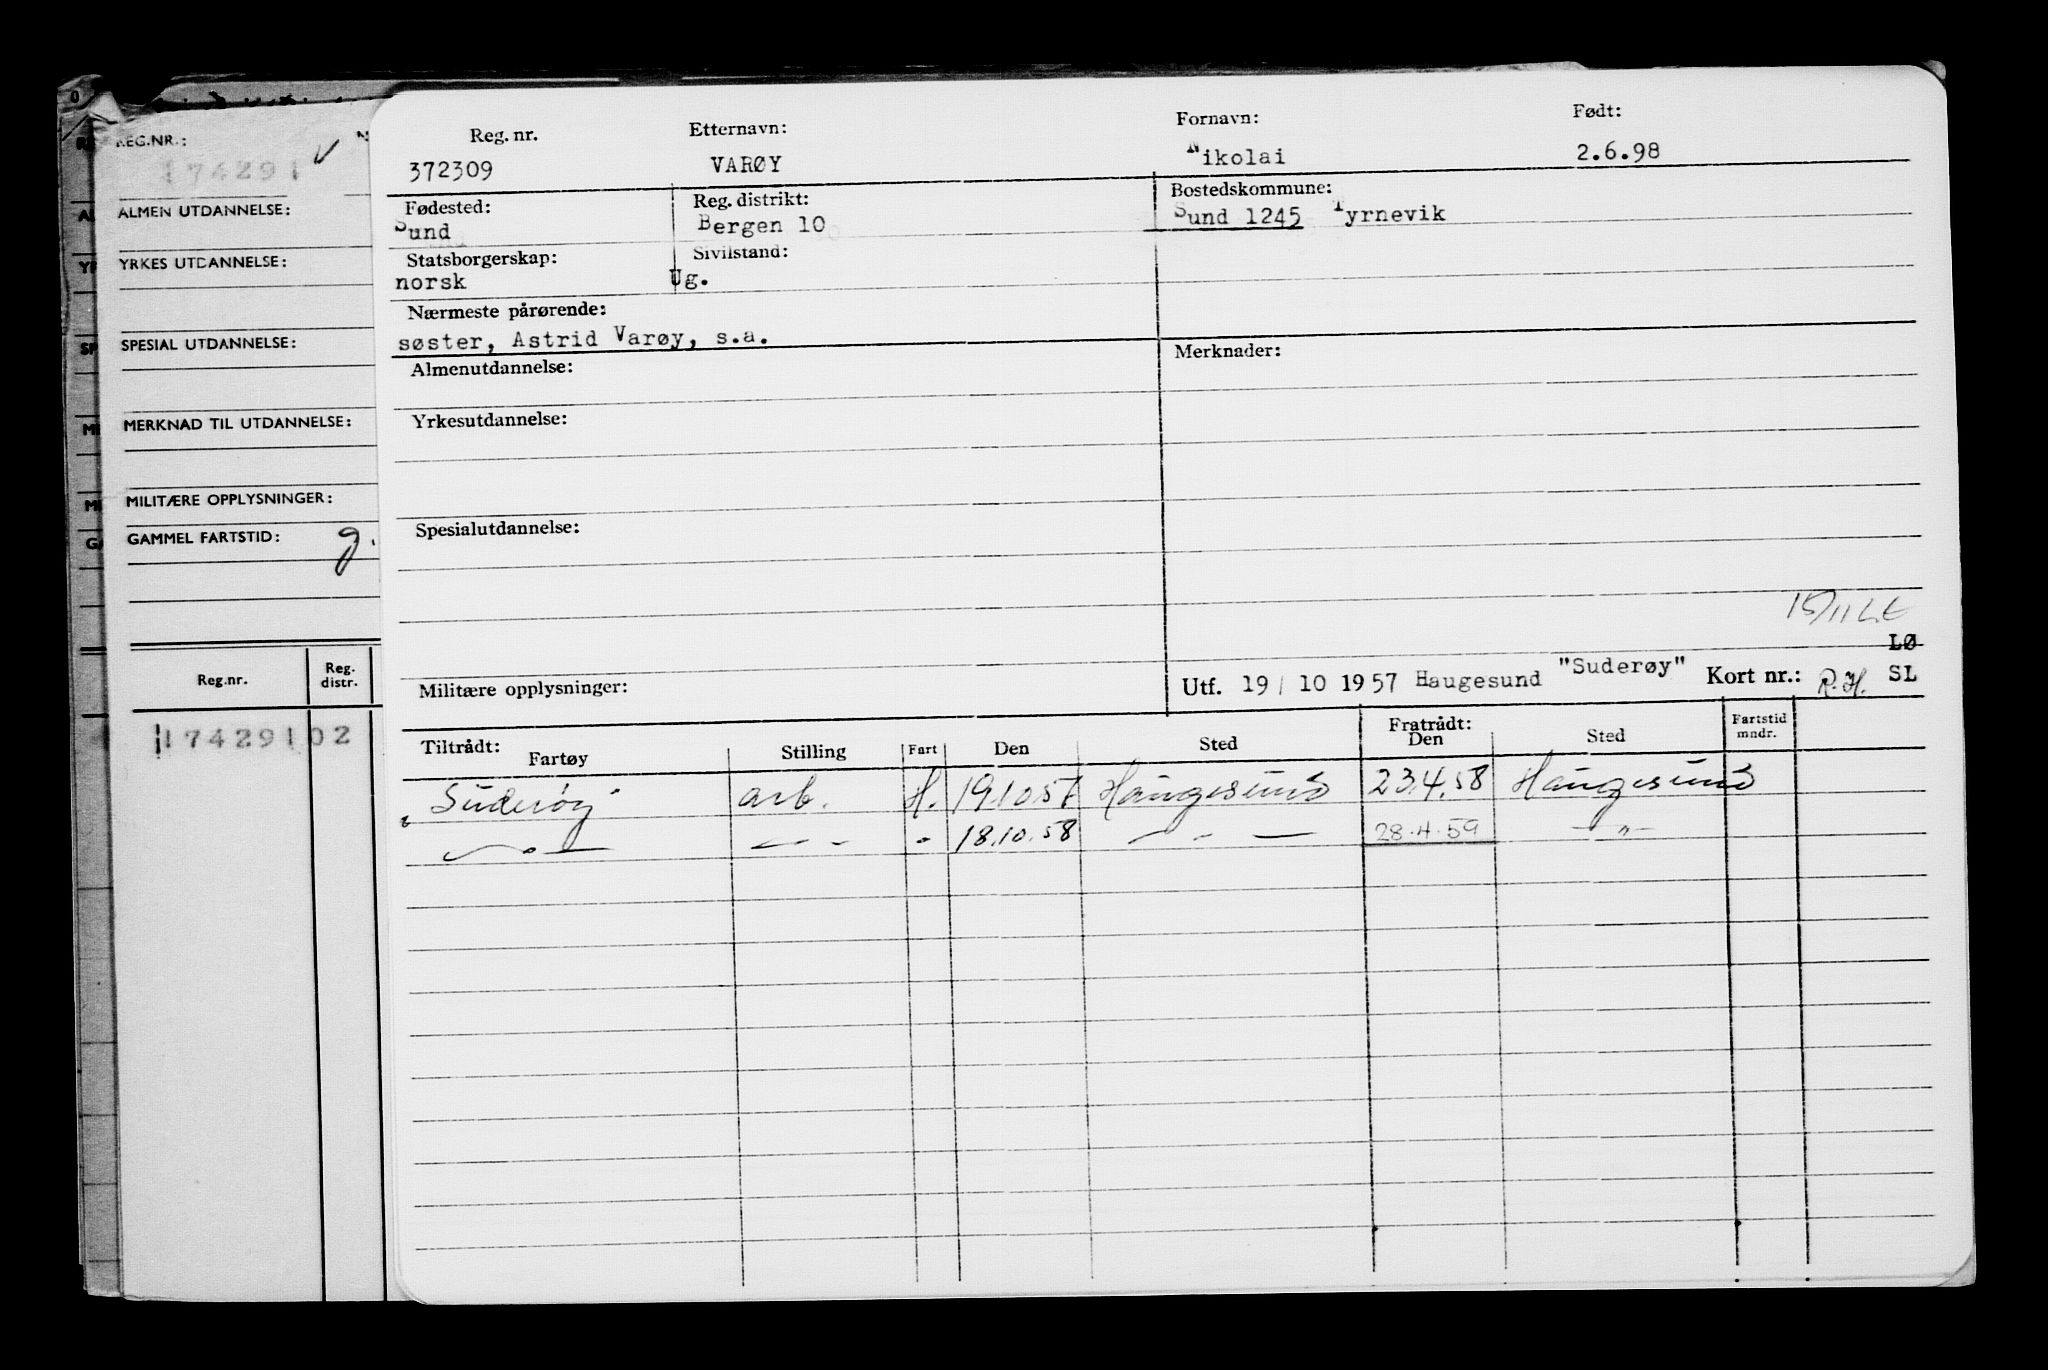 REG.NR.:
174291 ✓
ALMEN UTDANNELSE:
YRKES UTDANNELSE:
SPESIAL UTDANNELSE:
MERKNAD TIL UTDANNELSE:
MILITÆRE OPPLYSNINGER:
GAMMEL FARTSTID: g.
Reg.nr. Reg. distr.
174291 02
Reg. nr. Etternavn: Fornavn: Født:
372309 VARØY Nikolai 2.6.98
Fødested: Reg. distrikt: Bostedskommune:
Sund Bergen 10 Sund 1245 Tyrnevik
Statsborgerskap: Sivilstand:
norsk Ug.
Nærmeste pårørende:
søster, Astrid Varøy, s.a.
Almenutdannelse: Merknader:
Yrkesutdannelse:
Spesialutdannelse:
15/11
LØ
Militære opplysninger: Utf. 19/10 1957 Haugesund "Suderøy" Kort nr.: R.H. SL
Tiltrådt: Fratrådt:
Fartøy Stilling Fart Den Sted Den Sted Fartstid mndr.
"Suderøy" arb. H. 19.10.57 Haugesund 23.4.58 Haugesund
— " — — " - " 18.10.58 — " — 28.4.59 — " —